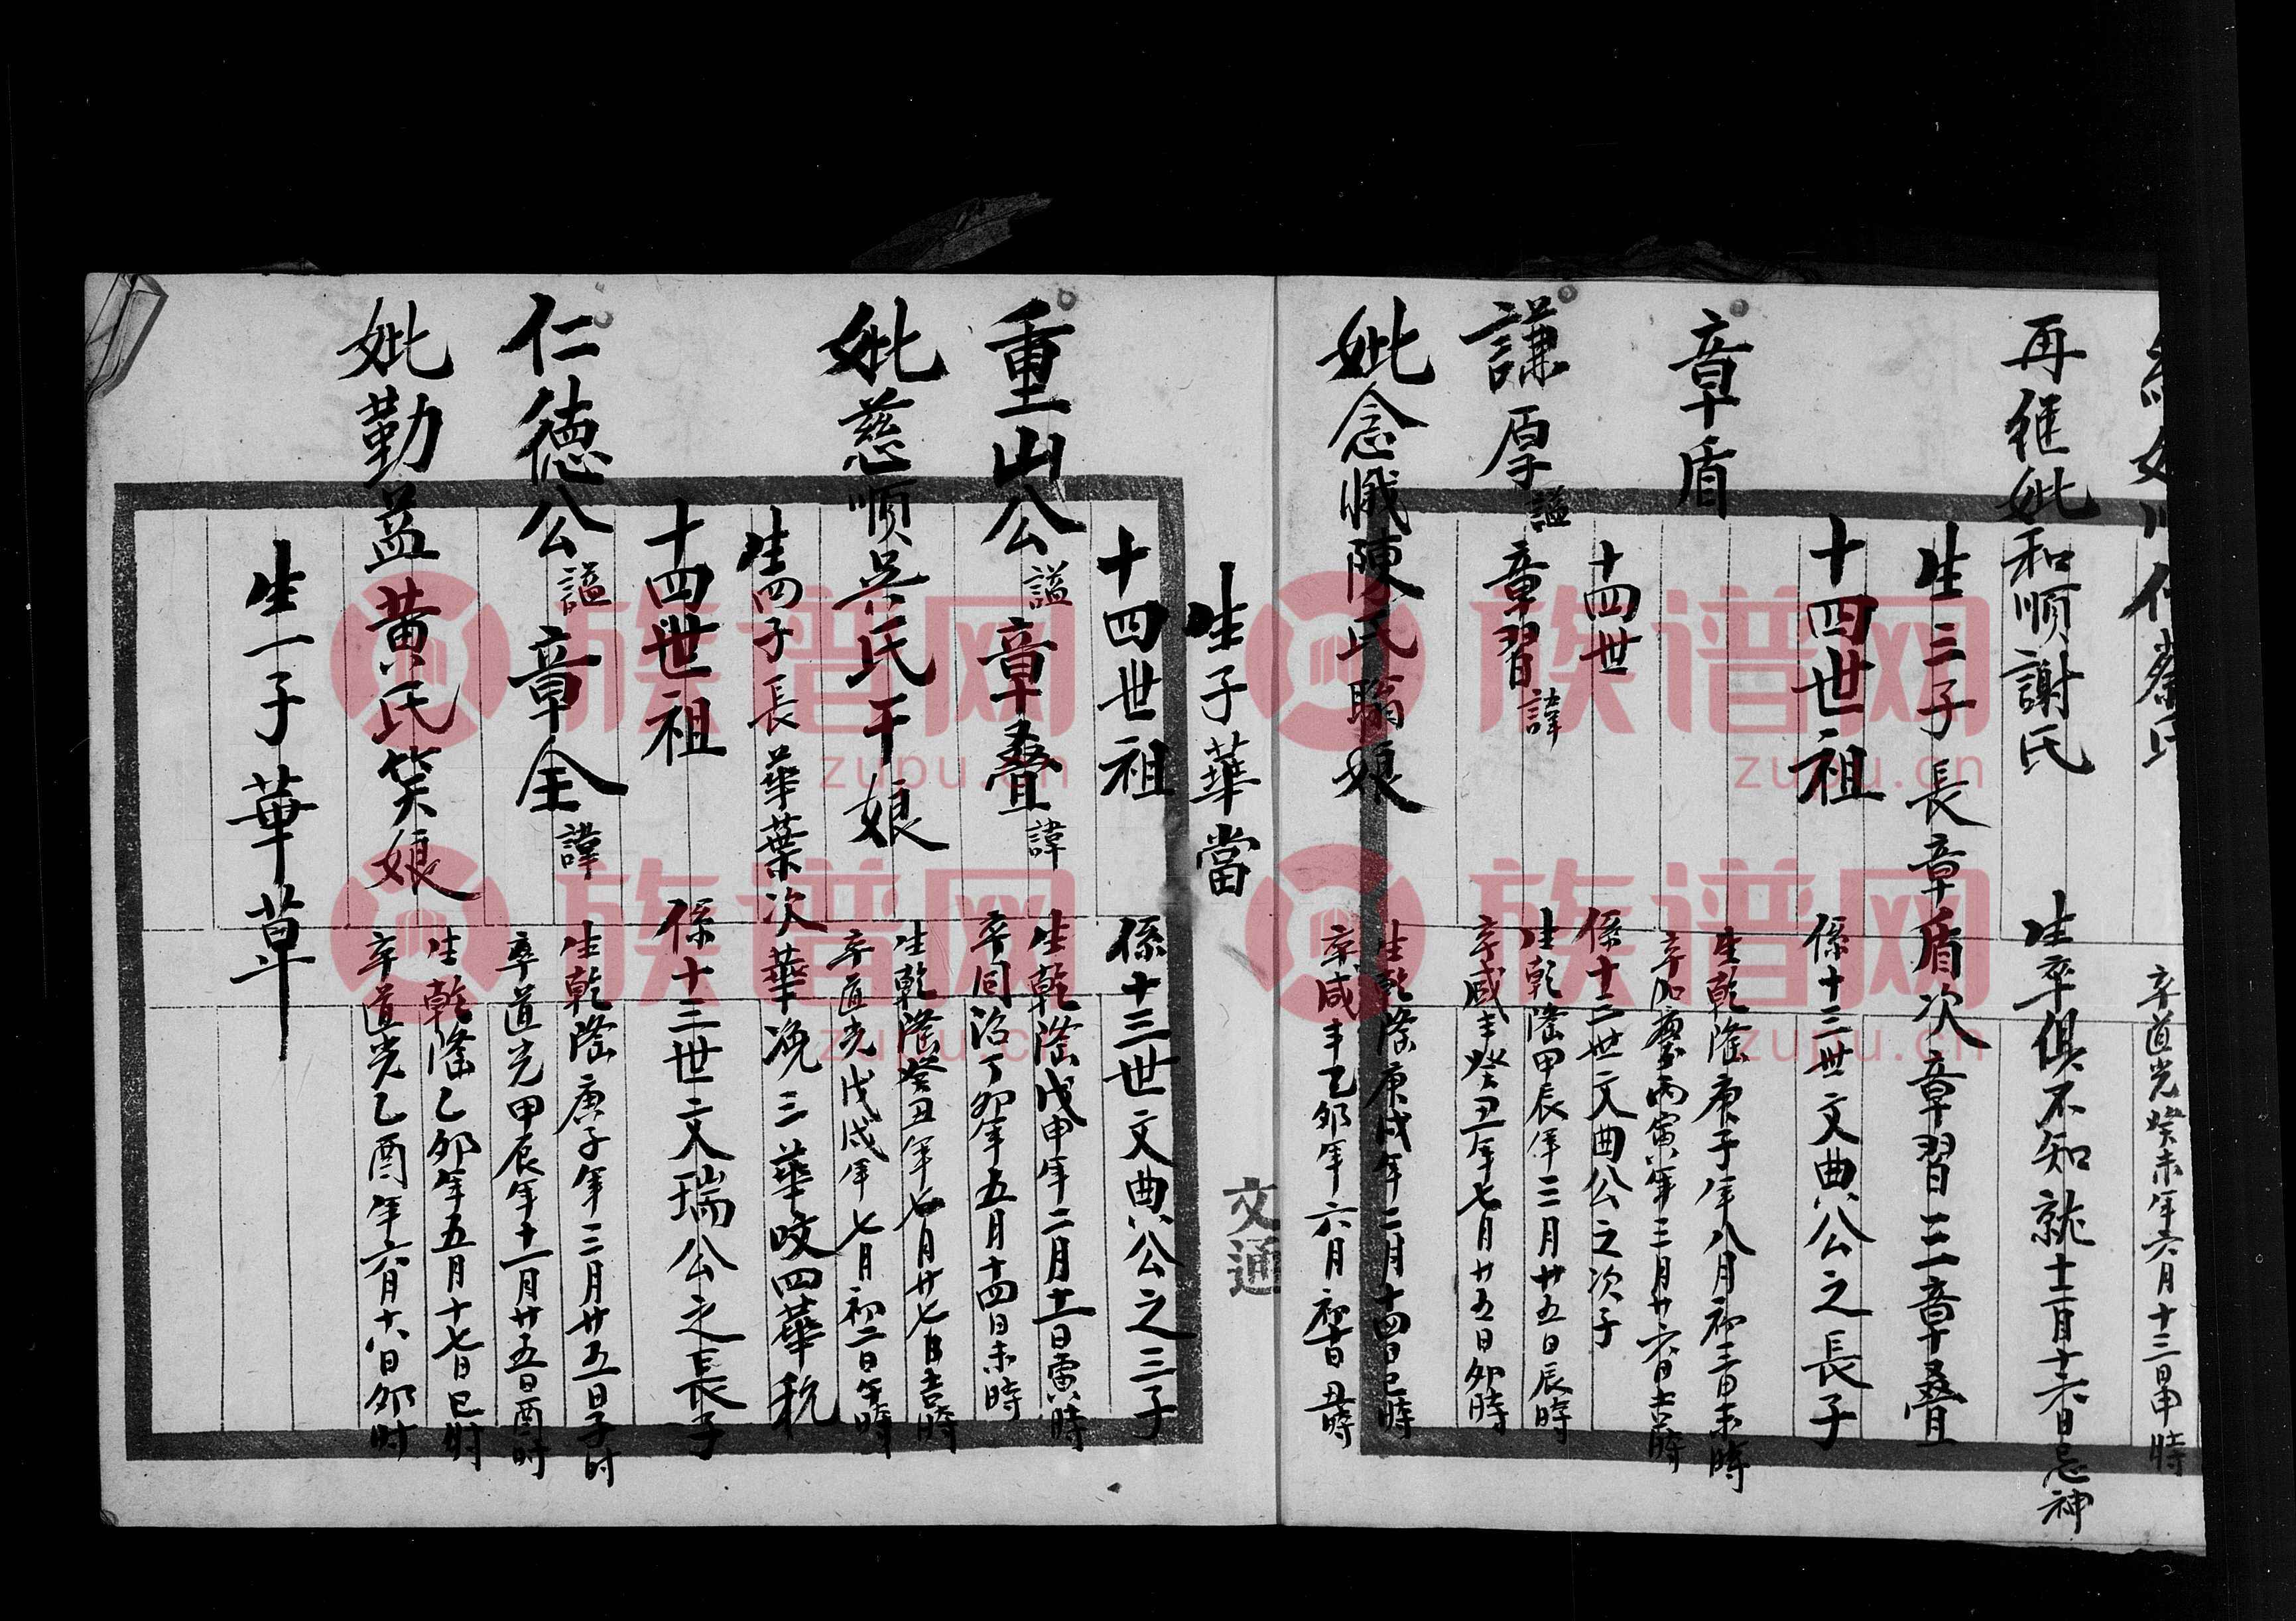 蔡氏
卒道光癸未年六月十三日申時
再繼妣和順謝氏
生卒俱不知就十二月十六日忌神
生三子長章盾次章習三章叠
十四世祖
係十三世文典公之長子
章盾
生乾隆庚子年八月初三日未時
卒加慶丙寅年三月廿六日吉時
十四世
係十三世文典公之次子
謙厚諡章習諱
生乾隆甲辰年三月廿五日辰時
卒咸丰癸丑年七月廿五日卯時
妣念懺陳氏 娘
生乾隆庚戌年二月十四日巳時
卒咸丰乙卯年六月初 日丑時
生子華當
文通
十四世祖
係十三世文典公之三子
重山公諡章叠諱
生乾隆戊申年二月十一日寅時
卒同治丁卯年五月十四日未時
妣慈順吳氏干娘
生乾隆癸丑年七月廿七日吉時
卒道光戊戌年七月初二日午時
生四子長華葉次華涗三華咬四華稅
十四世祖
係十三世文瑞公之長子
仁德公諡章全諱
生乾隆庚子年三月廿五日子时
卒道光甲辰年十一月廿五日酉时
妣勤益黄氏笑娘
生乾隆乙卯年五月十七日巳时
卒道光乙酉年六月十八日卯时
生一子華草
族谱网
zupu.cn
族谱网
zupu.cn
族谱网
zupu.cn
族谱网
zupu.cn